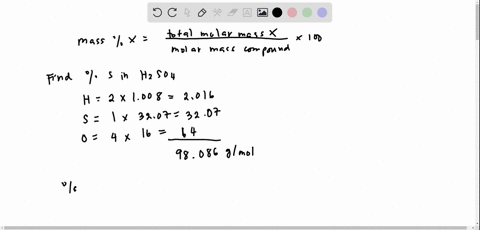 mass % X = total molar mass X / molar mass compound × 100
Find % S in H₂SO₄
H = 2 × 1.008 = 2.016
S = 1 × 32.07 = 32.07
O = 4 × 16 = 64
98.086 g/mol
%